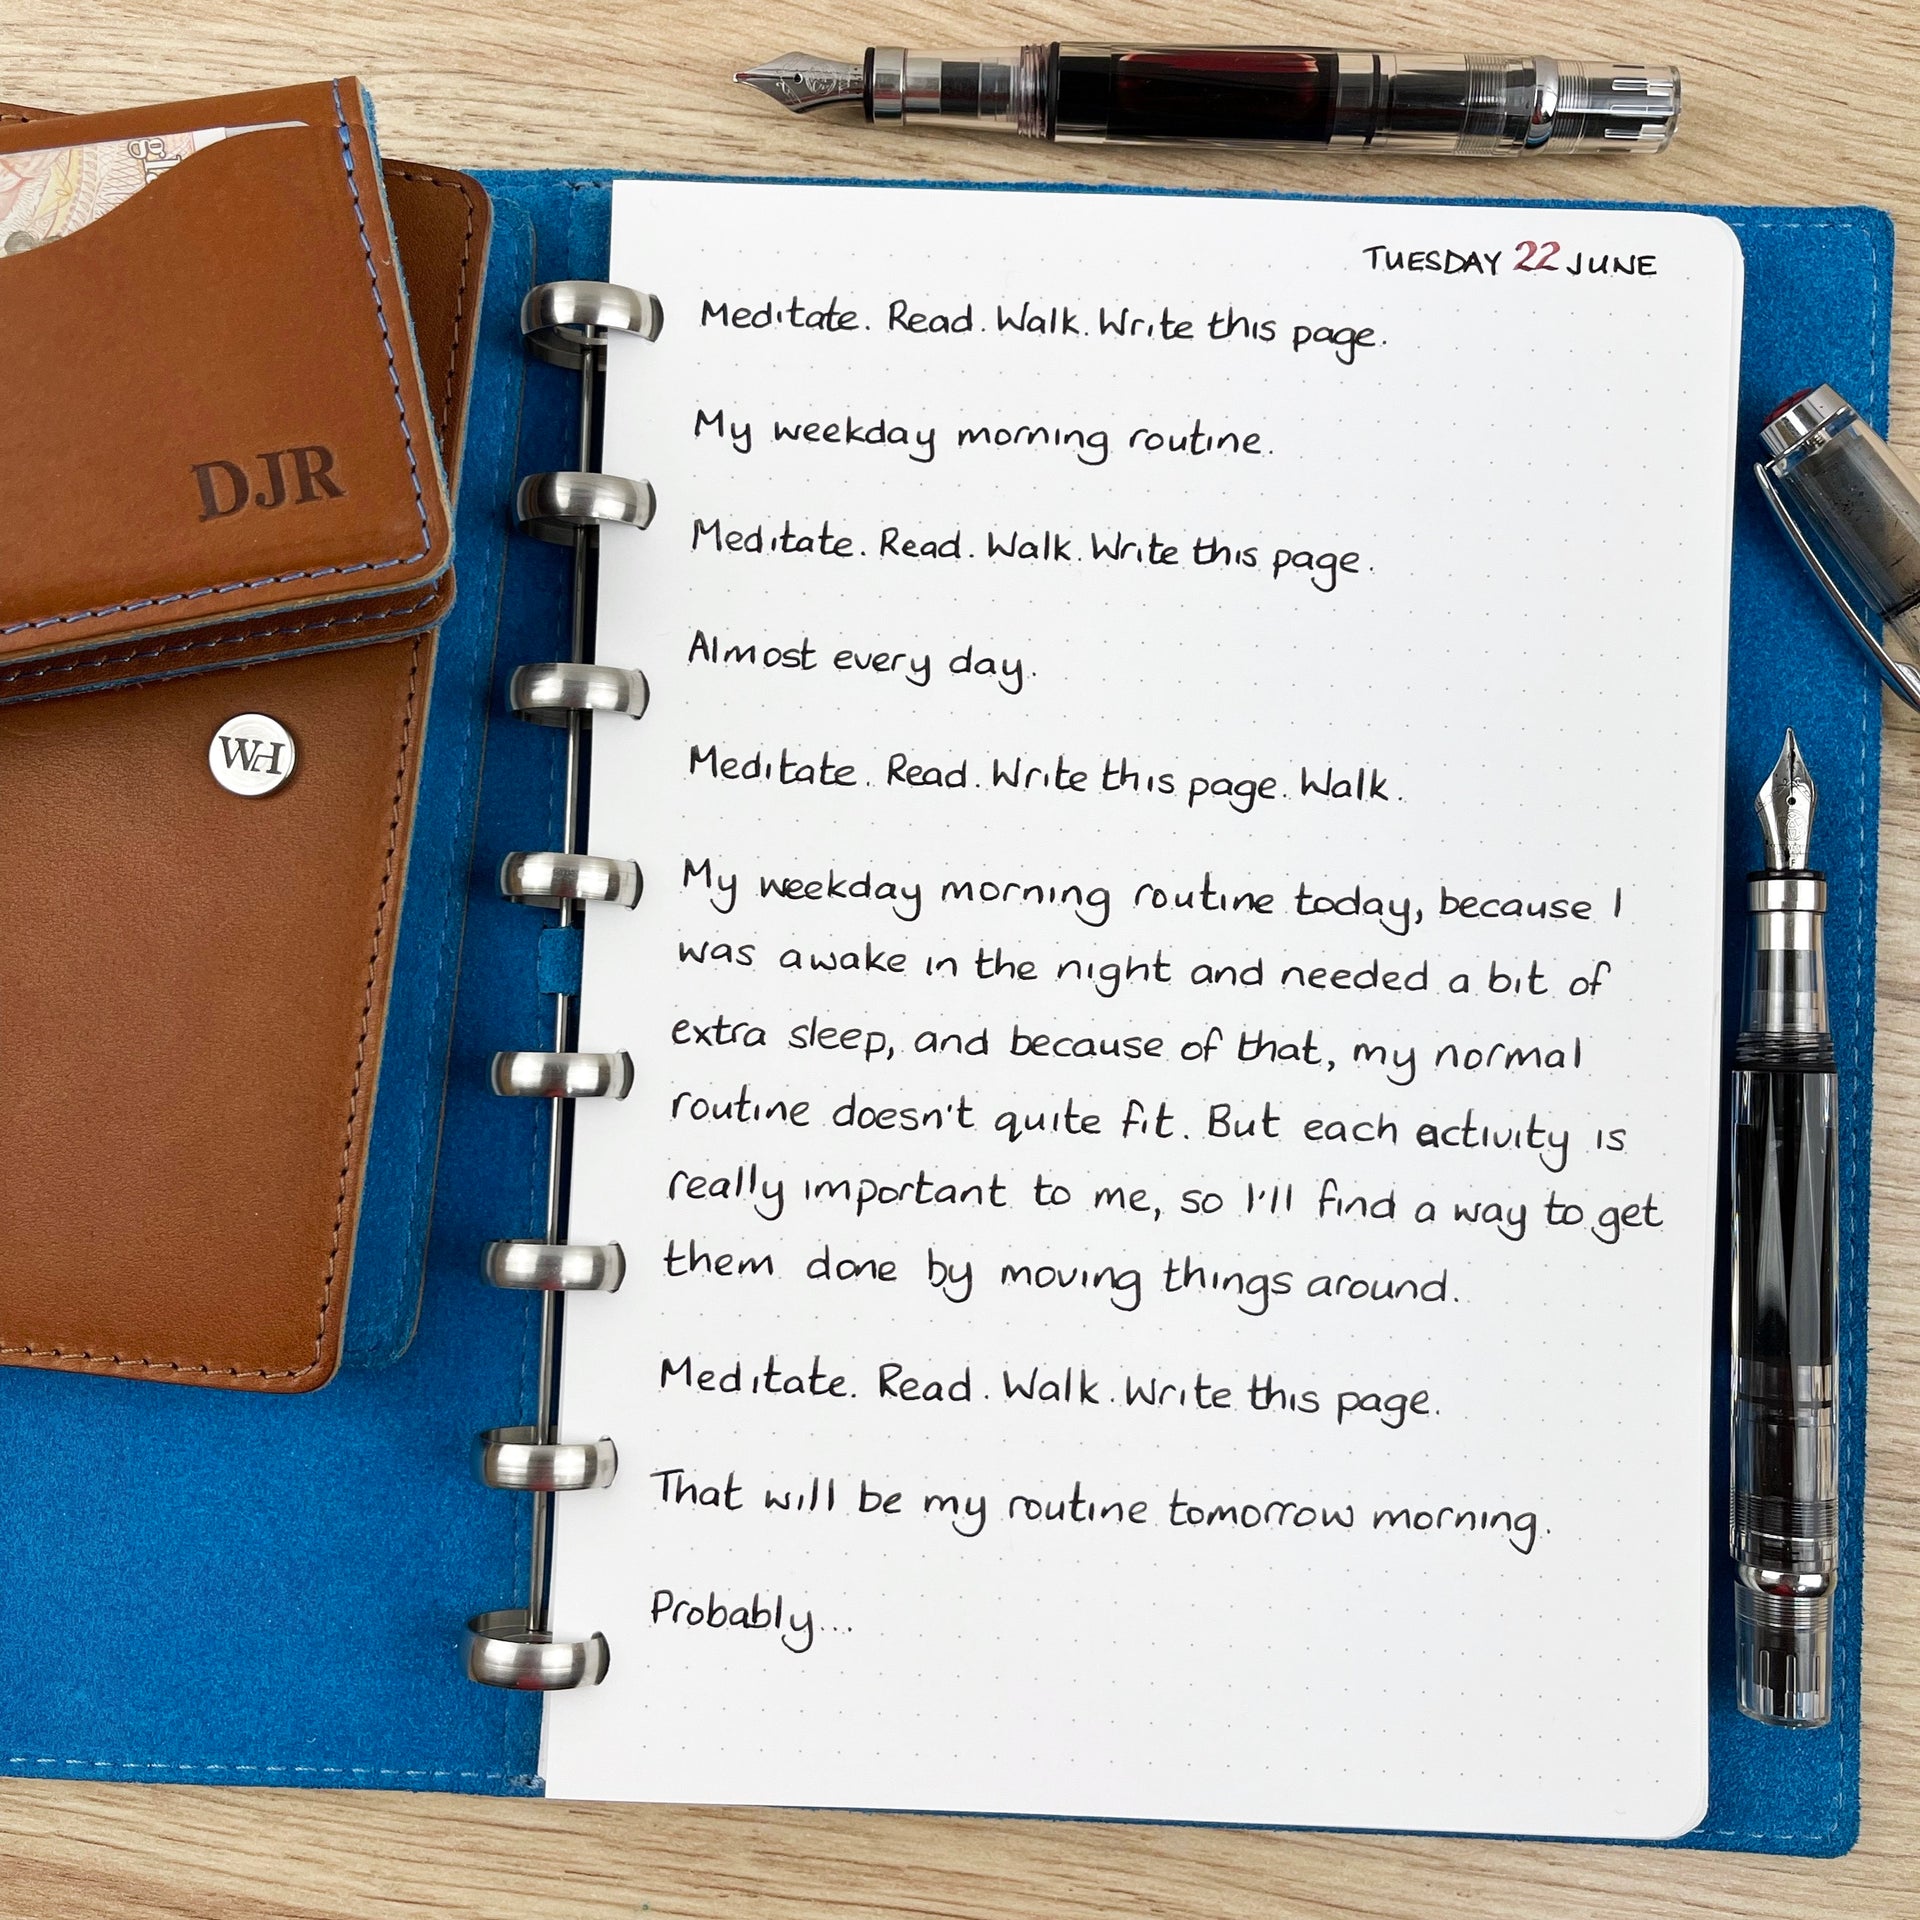 TUESDAY 22 JUNE
Meditate. Read. Walk. Write this page.
My weekday morning routine.
Meditate. Read. Walk. Write this page.
Almost every day.
Meditate. Read. Write this page. Walk.
My weekday morning routine today, because I
was awake in the night and needed a bit of
extra sleep, and because of that, my normal
routine doesn't quite fit. But each activity is
really important to me, so I'll find a way to get
them done by moving things around.
Meditate. Read. Walk. Write this page.
That will be my routine tomorrow morning.
Probably...
DJR
WH